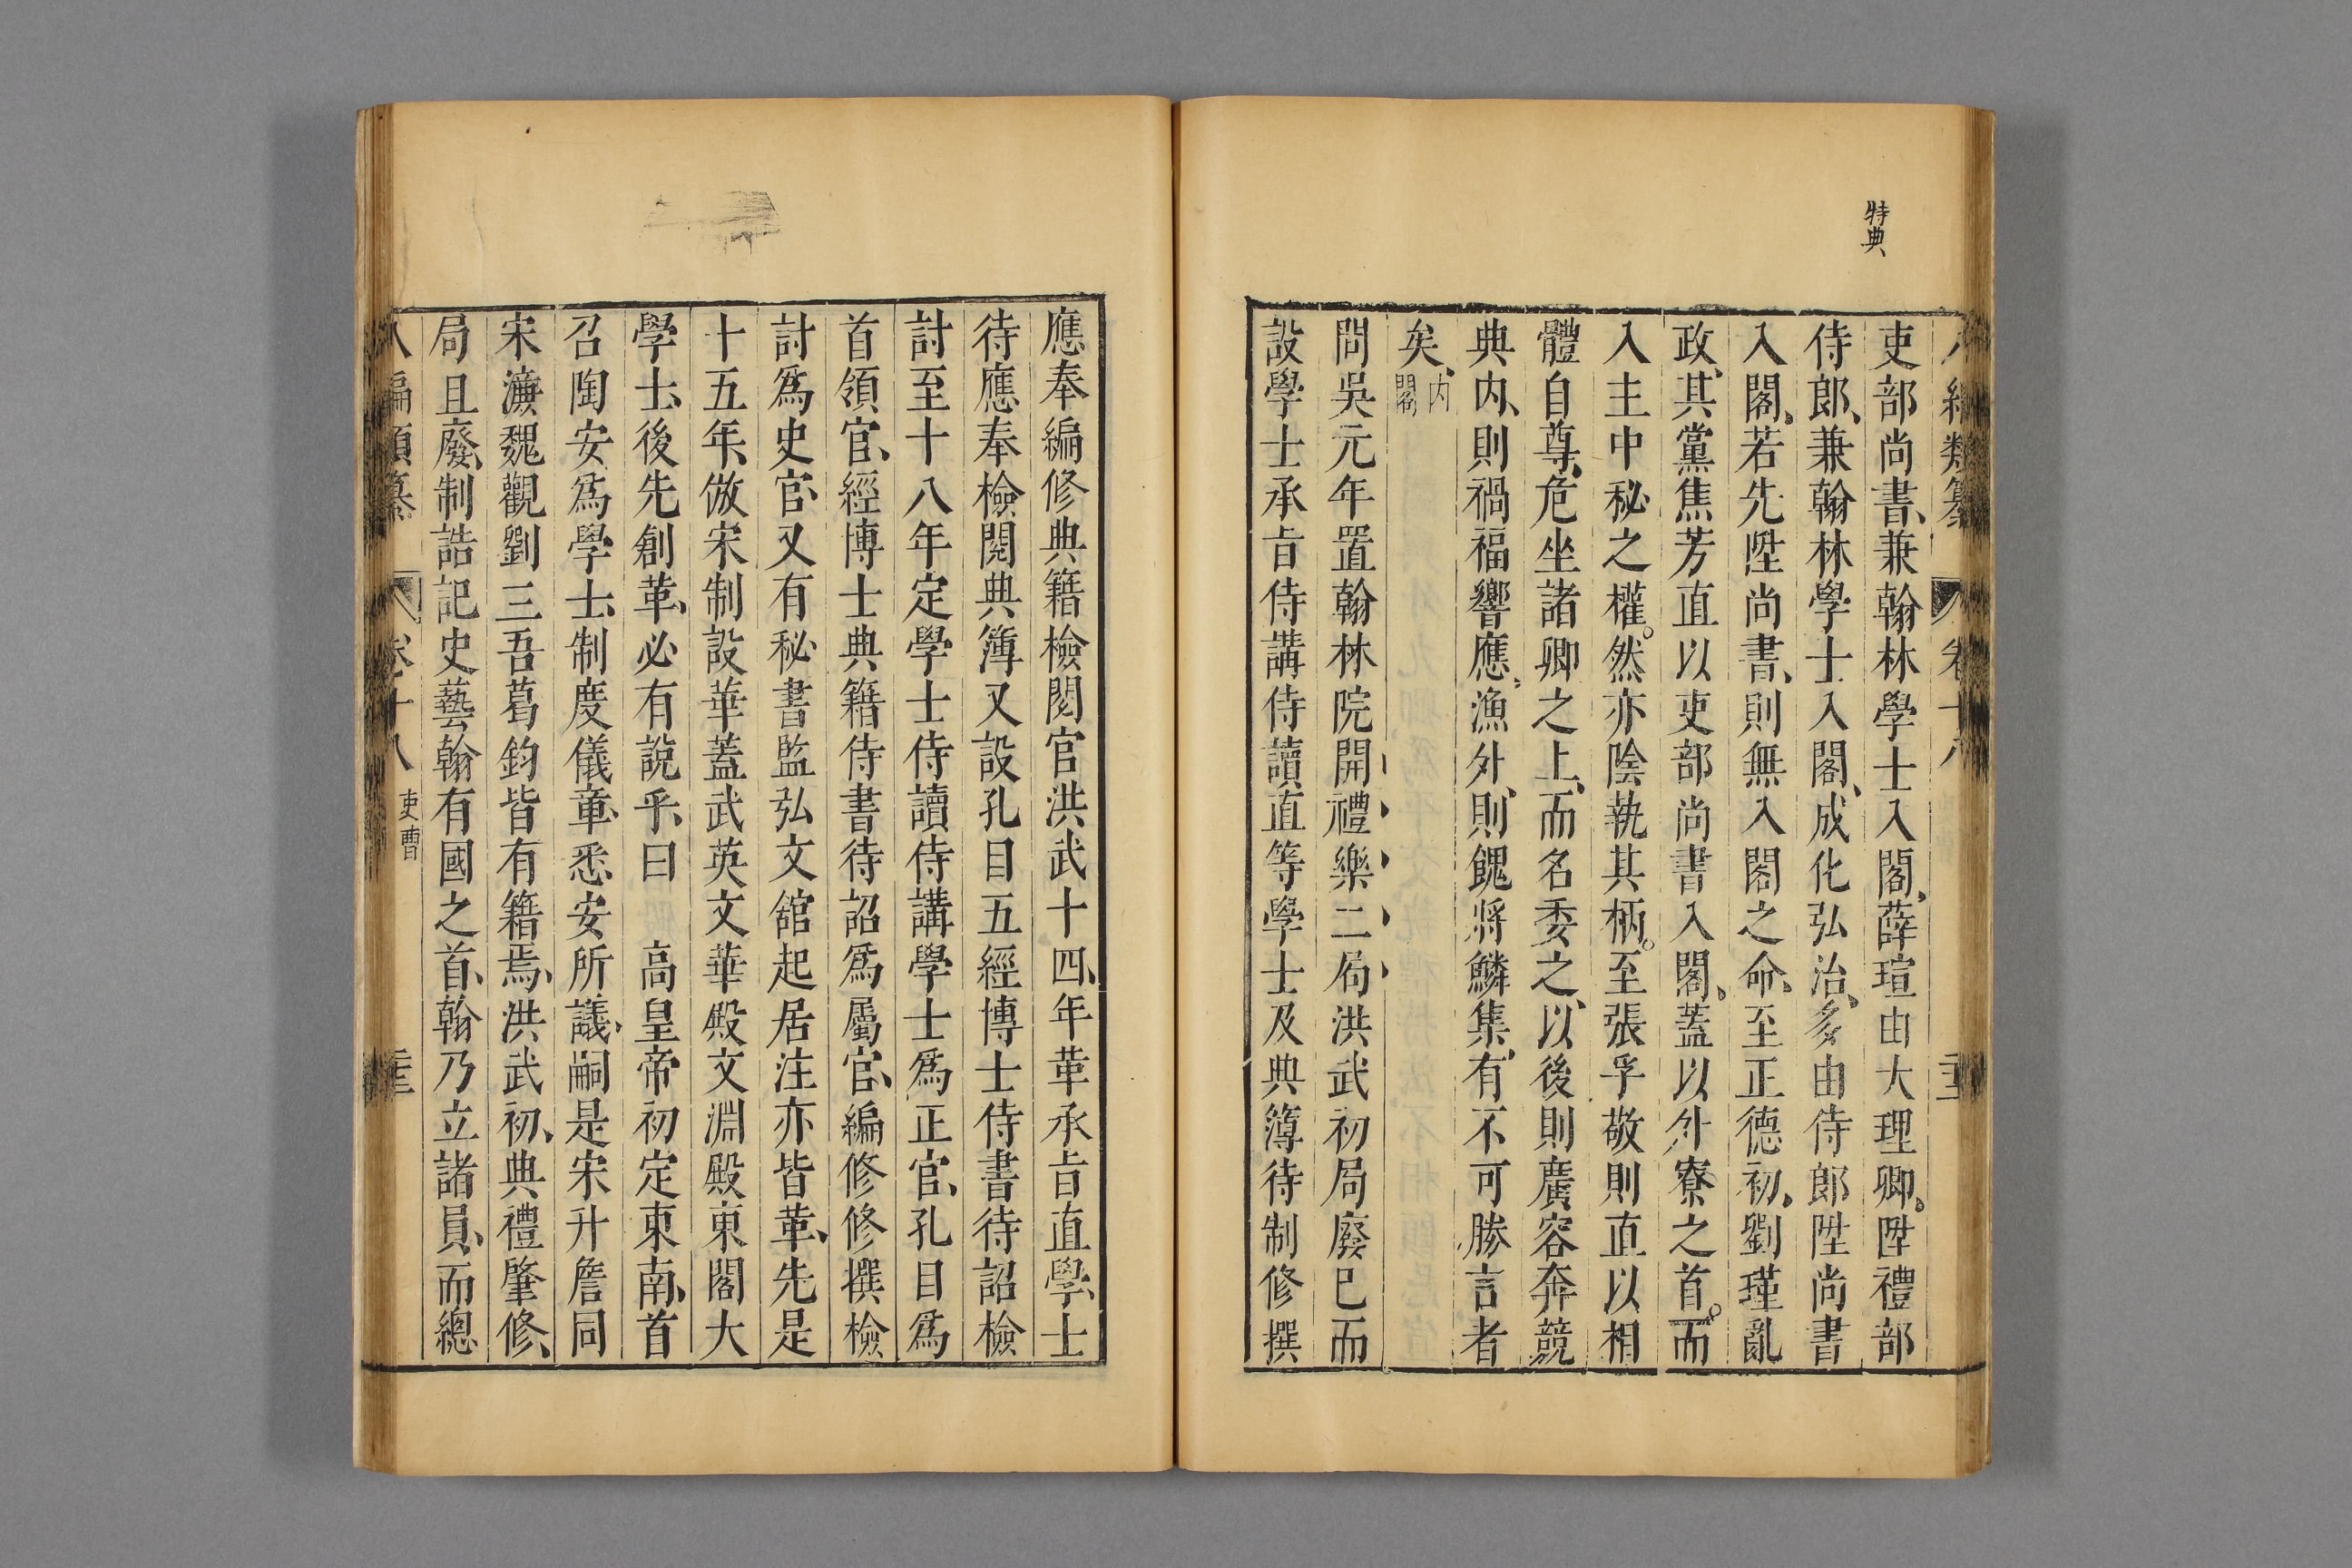 特典
八編類纂 卷十八
吏部尚書、兼翰林學士入閣、薛瑄由大理卿。陞禮部
侍郎、兼翰林學士入閣、成化弘治、多由侍郎陞尚書
入閣、若先陞尚書、則無入閣之命、至正德初、劉瑾亂
政、其黨焦芳直以吏部尚書入閣、蓋以外寮之首。而
入主中秘之權。然亦陰執其柄。至張孚敬則直以相
體自尊、危坐諸卿之上、而名委之、以後則廣容奔競
典内、則禍福響應、漁外、則餽將鱗集、有不可勝言者
矣、内閣
問吳元年置翰林院開禮樂二局洪武初局廢已而
設學士承旨侍講侍讀直等學士及典簿待制修撰
應奉編修典籍檢閱官洪武十四、年革承旨直學、士
待應奉檢閱典簿又設孔目五經博士侍書待詔檢
討至十八年定學士侍讀侍講學士爲正官、孔目爲
首領官、經博士典籍侍書待詔爲屬官、編修修撰檢
討爲史官、又有秘書監弘文舘起居注亦皆革、先是
十五年、倣宋制設華蓋武英文華殿文淵殿東閣大
學士、後先創革、必有說乎、曰 高皇帝初定東南、首
召陶安爲學士、制度儀章、悉安所議、嗣是宋升詹同
宋濂魏觀劉三吾葛鈞皆有籍焉、洪武初、典禮肇修、
局且廢、制誥記史藝翰有國之首、翰乃立諸員、而總
八編類纂 卷十八 吏曹